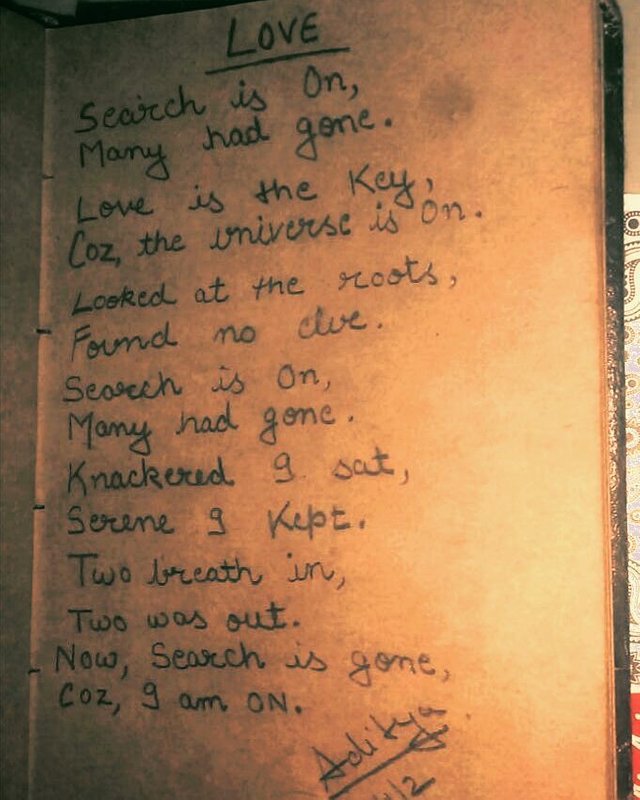 LOVE
Search is On,
Many had gone.
Love is the Key,
Coz, the universe is On.
Looked at the roots,
Found no clue.
Search is On,
Many had gone.
Knackered I sat,
Serene I Kept.
Two breath in,
Two was out.
Now, Search is gone,
Coz, I am ON.
Aditya